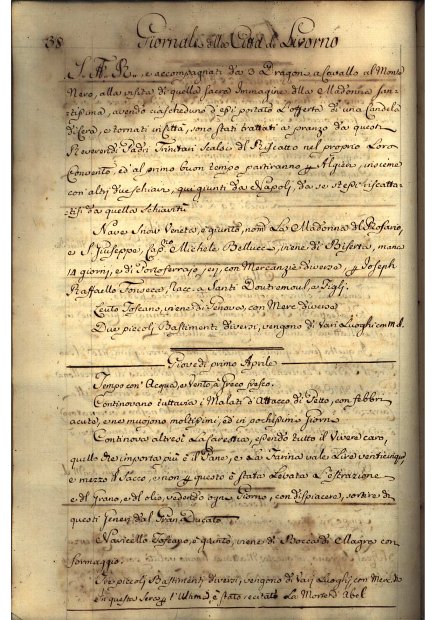 38 Giornali della Città di Livorno
S. A. R., e accompagnati da 3 Dragoni a Cavallo al Monte
Nero, alla visita di quella sacra Immagine della Madonna San-
tissima, avendo ciascheduno d'essi portato l'offerta di una Candela
di Cera, e tornati in Città, sono stati trattati a pranzo da questi
Reverendi Padri Trinitari Scalsi del Riscatto nel proprio Loro
Convento, ed al primo buon tempo partiranno per Algieri, insieme
con altri due schiavi, qui giunti da Napoli, da se stessi riscatta-
tisi da quella Schiavitù
Nave Snow Veneta, è giunto, nom. La Madonna del Rosario,
e S. Giuseppe, Cap. Michele Bellucci, viene di Biserta, manca
14 giorni, e di Portoferrajo jeri, con Mercanzie diverse per Joseph
Raffaello Fonseca, Racc. a Santi Doutremoul, e Figli.
Leuto Toscano, viene di Genova, con Merc. diverse
Due piccoli Bastimenti diversi, vengono di vari Luoghi con m. d.
Giovedì primo Aprile
Tempo con Acqua, e Vento a Greco fresco.
Continovano tuttavia i Malati d'Attacco di Petto, con febbri
acute, e ne muojono moltissimi, ed in pochissimi Giorni
Continova altresì La carestia, essendo tutto il Vivere caro,
quello che importa più è il Pane, e La Farina vale Lire venticinque
e mezzo il Sacco, e non per questo è stata Levata L'estrazione
e del Grano, e del olio, vedendo ogni Giorno, con dispiacere, sortire di
questi Generi dal Gran Ducato
Navicello Toscano, è giunto, viene di Bocca di Magra con
formaggio.
Tre piccoli Bastimenti diversi, vengono di vari Luoghi con Merc. d.
e in questa sera per l'ultima è stato recitato La Morte d'Abel